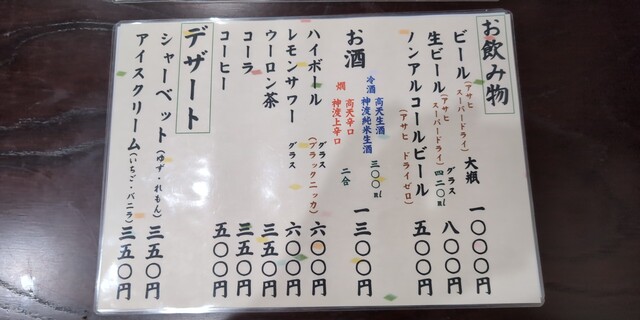 お飲み物
ビール(アサヒ スーパードライ) 大瓶 一〇〇〇円
生ビール(アサヒ スーパードライ) グラス 四二〇ml 八〇〇円
ノンアルコールビール(アサヒ ドライゼロ) 五〇〇円
お酒
冷酒 高天生酒
神渡純米生酒 三〇〇ml
燗 高天辛口
神渡上辛口 二合
一三〇〇円
ハイボール(ブラックニッカ) グラス 六〇〇円
レモンサワー グラス 六〇〇円
ウーロン茶 三五〇円
コーラ 三五〇円
コーヒー 五〇〇円
デザート
シャーベット(ゆず・れもん) 三五〇円
アイスクリーム(いちご・バニラ) 三五〇円